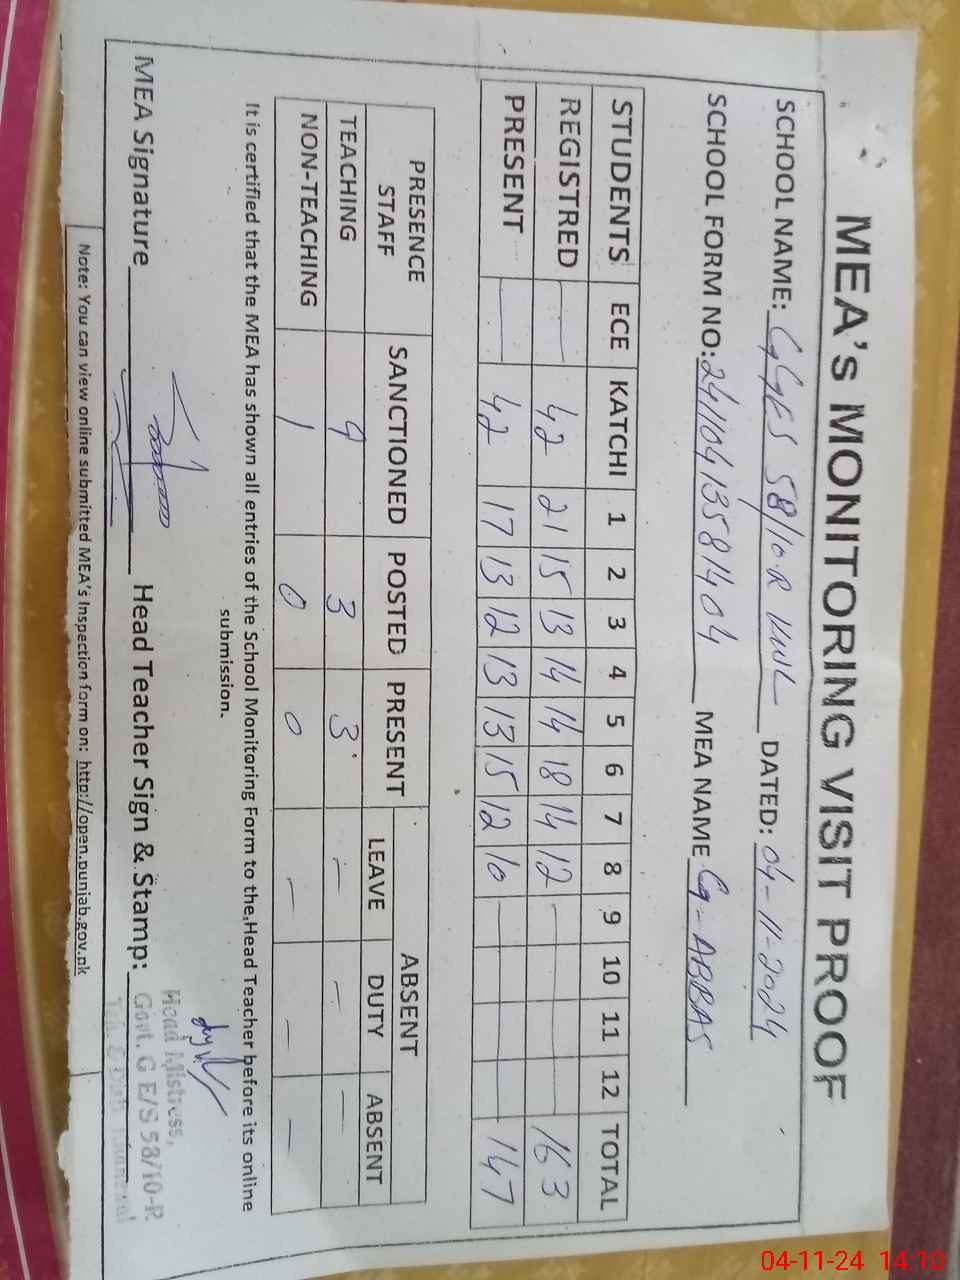 MEA's MONITORING VISIT PROOF
SCHOOL NAME: GGES 58/10.R KWL DATED: 04-11-2024
SCHOOL FORM NO: 24110413581404 MEA NAME G-ABBAS
STUDENTS ECE KATCHI 1 2 3 4 5 6 7 8 9 10 11 12 TOTAL
REGISTRED — 42 21 15 13 14 14 18 14 12 — 163
PRESENT — 42 17 13 12 13 13 15 12 10 — 147
PRESENCE STAFF SANCTIONED POSTED PRESENT ABSENT
LEAVE DUTY ABSENT
TEACHING 9 3 3 — — —
NON-TEACHING 1 0 0 — — —
It is certified that the MEA has shown all entries of the School Monitoring Form to the Head Teacher before its online
submission.
MEA Signature Head Teacher Sign & Stamp:
Head Mistress,
Govt. G E/S 58/10-R
Note: You can view online submitted MEA's Inspection form on: http://open.punjab.gov.pk
04-11-24 14:10